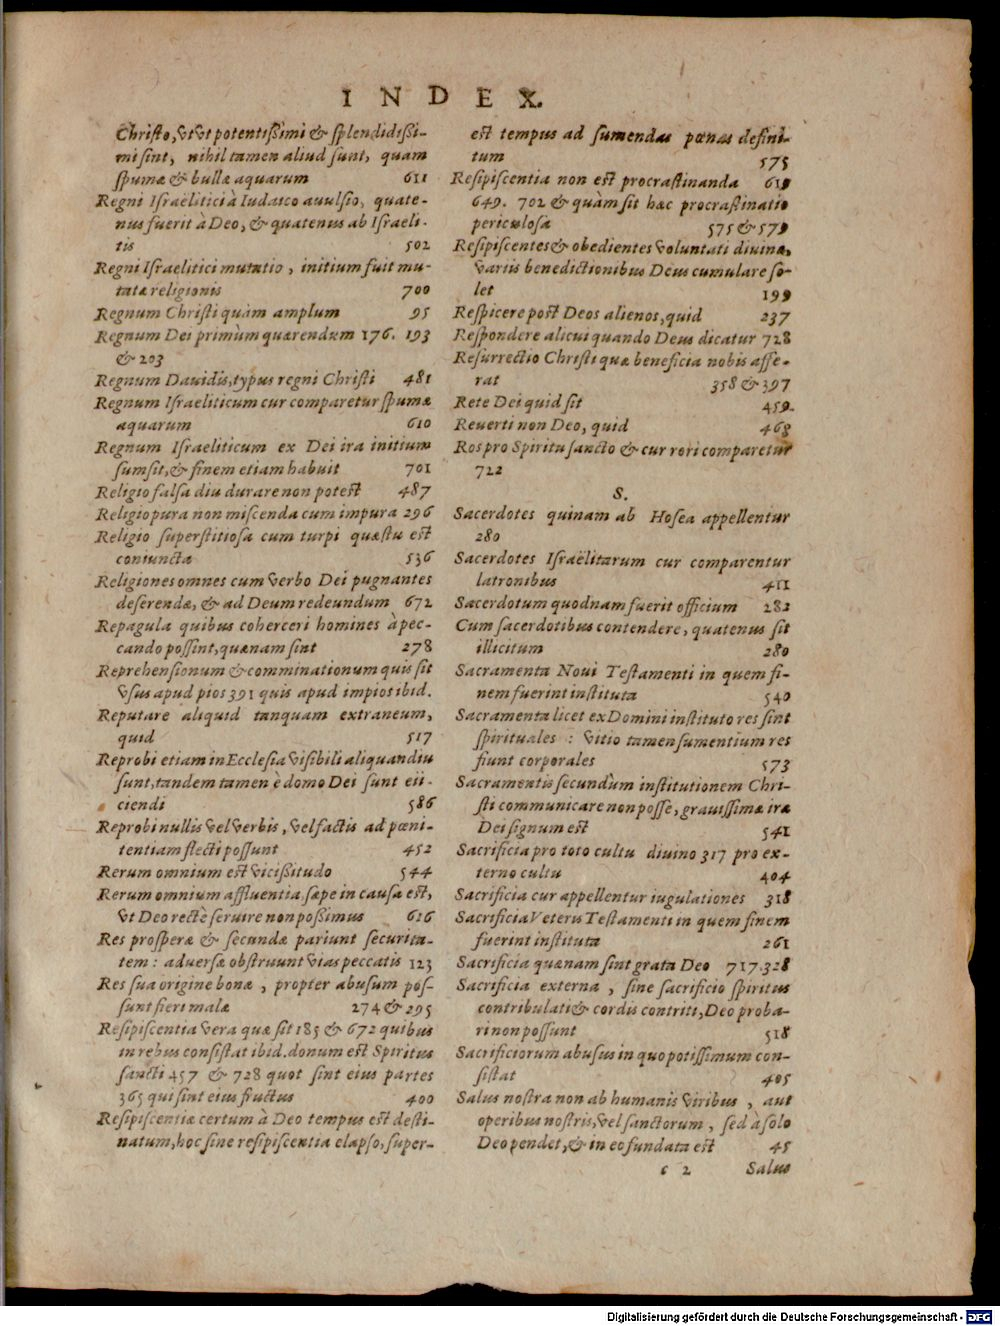 INDEX.
Christo, vtvt potentißimi & splendidißi-
mi sint, nihil tamen aliud sunt, quam
spumæ & bullæ aquarum 611
Regni Israëlitici à Iudaico auulsio, quate-
nus fuerit à Deo, & quatenus ab Israeli-
tis 502
Regni Israelitici mutatio, initium fuit mu-
tatæ religionis 700
Regnum Christi quàm amplum 95
Regnum Dei primùm quærendum 176. 193
& 203
Regnum Dauidis, typus regni Christi 481
Regnum Israeliticum cur comparetur spumæ
aquarum 610
Regnum Israeliticum ex Dei ira initium
sumsit, & finem etiam habuit 701
Religio falsa diu durare non potest 487
Religio pura non miscenda cum impura 296
Religio superstitiosa cum turpi quæstu est
coniuncta 536
Religiones omnes cum verbo Dei pugnantes
deserendæ, & ad Deum redeundum 672
Repagula quibus coherceri homines à pec-
cando possint, quænam sint 278
Reprehensionum & comminationum quis sit
vsus apud pios 391 quis apud impios ibid.
Reputare aliquid tanquam extraneum,
quid 517
Reprobi etiam in Ecclesia visibili aliquandiu
sunt, tandem tamen è domo Dei sunt eii-
ciendi 586
Reprobi nullis vel verbis, vel factis ad pœni-
tentiam flecti possunt 452
Rerum omnium est vicißitudo 544
Rerum omnium affluentia sæpe in causa est,
vt Deo rectè seruire non poßimus 616
Res prosperæ & secundæ pariunt securita-
tem: aduersæ obstruunt vias peccatis 123
Res sua origine bonæ, propter abusum pos-
sunt fieri malæ 274 & 295
Resipiscentia vera quæ sit 185 & 672 quibus
in rebus consistat ibid. donum est Spiritus
sancti 457 & 728 quot sint eius partes
365 qui sint eius fructus 400
Resipiscentiæ certum à Deo tempus est desti-
natum, hoc sine resipiscentia elapso, super-
est tempus ad sumendas pœnas defini-
tum 575
Resipiscentia non est procrastinanda 619
649. 702 & quàm sit hæc procrastinatio
periculosa 575 & 579
Resipiscentes & obedientes voluntati diuinæ,
variis benedictionibus Deus cumulare so-
let 199
Respicere post Deos alienos, quid 237
Respondere alicui quando Deus dicatur 728
Resurrectio Christi quæ beneficia nobis affe-
rat 358 & 397
Rete Dei quid sit 459.
Reuerti non Deo, quid 463
Ros pro Spiritu sancto & cur rori comparetur
722
S.
Sacerdotes quinam ab Hosea appellentur
280
Sacerdotes Israëlitarum cur comparentur
latronibus 411
Sacerdotum quodnam fuerit officium 282
Cum sacerdotibus contendere, quatenus sit
illicitum 280
Sacramenta Noui Testamenti in quem fi-
nem fuerint instituta 540
Sacramenta licet ex Domini instituto res sint
spirituales : vitio tamen sumentium res
fiunt corporales 573
Sacramentis secundùm institutionem Chri-
sti communicare non posse, grauissimæ iræ
Dei signum est 541
Sacrificia pro toto cultu diuino 317 pro ex-
terno cultu 404
Sacrificia cur appellentur iugulationes 318
Sacrificia Veteris Testamenti in quem finem
fuerint instituta 261
Sacrificia quænam sint grata Deo 717. 328
Sacrificia externa, sine sacrificio spiritus
contribulati & cordis contriti, Deo proba-
ri non possunt 518
Sacrificiorum abusus in quo potissimum con-
sistat 405
Salus nostra non ab humanis viribus, aut
operibus nostris, vel sanctorum, sed à solo
Deo pendet, & in eo fundata est 45
c 2 Salus
Digitalisierung gefördert durch die Deutsche Forschungsgemeinschaft - DFG